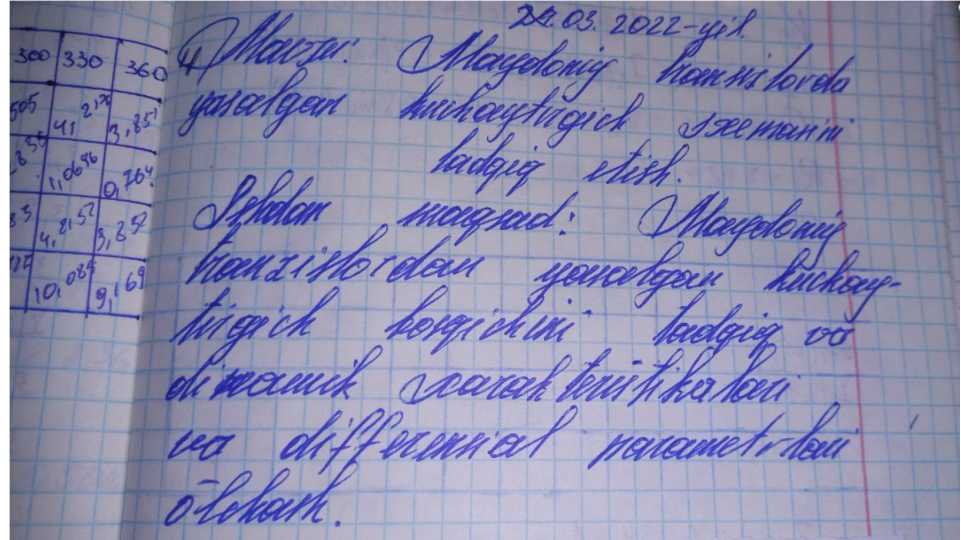 300 330 360
505 4,2170 3,851
,836 1,0696 0,764
83 4,2,52 3,852
10,084 9,169
24.03.2022-yil.
4 Mavzu: Maydoniy tranzistorda
yasalgan kuchaytirgich sxemasini
tadqiq etish.
Ishdan maqsad: Maydoniy
tranzistordan yasalgan kuchay-
tirgich bosqichini tadqiq va
dinamik xarakteristikalari
va differensial parametrlari
o‘lchash.